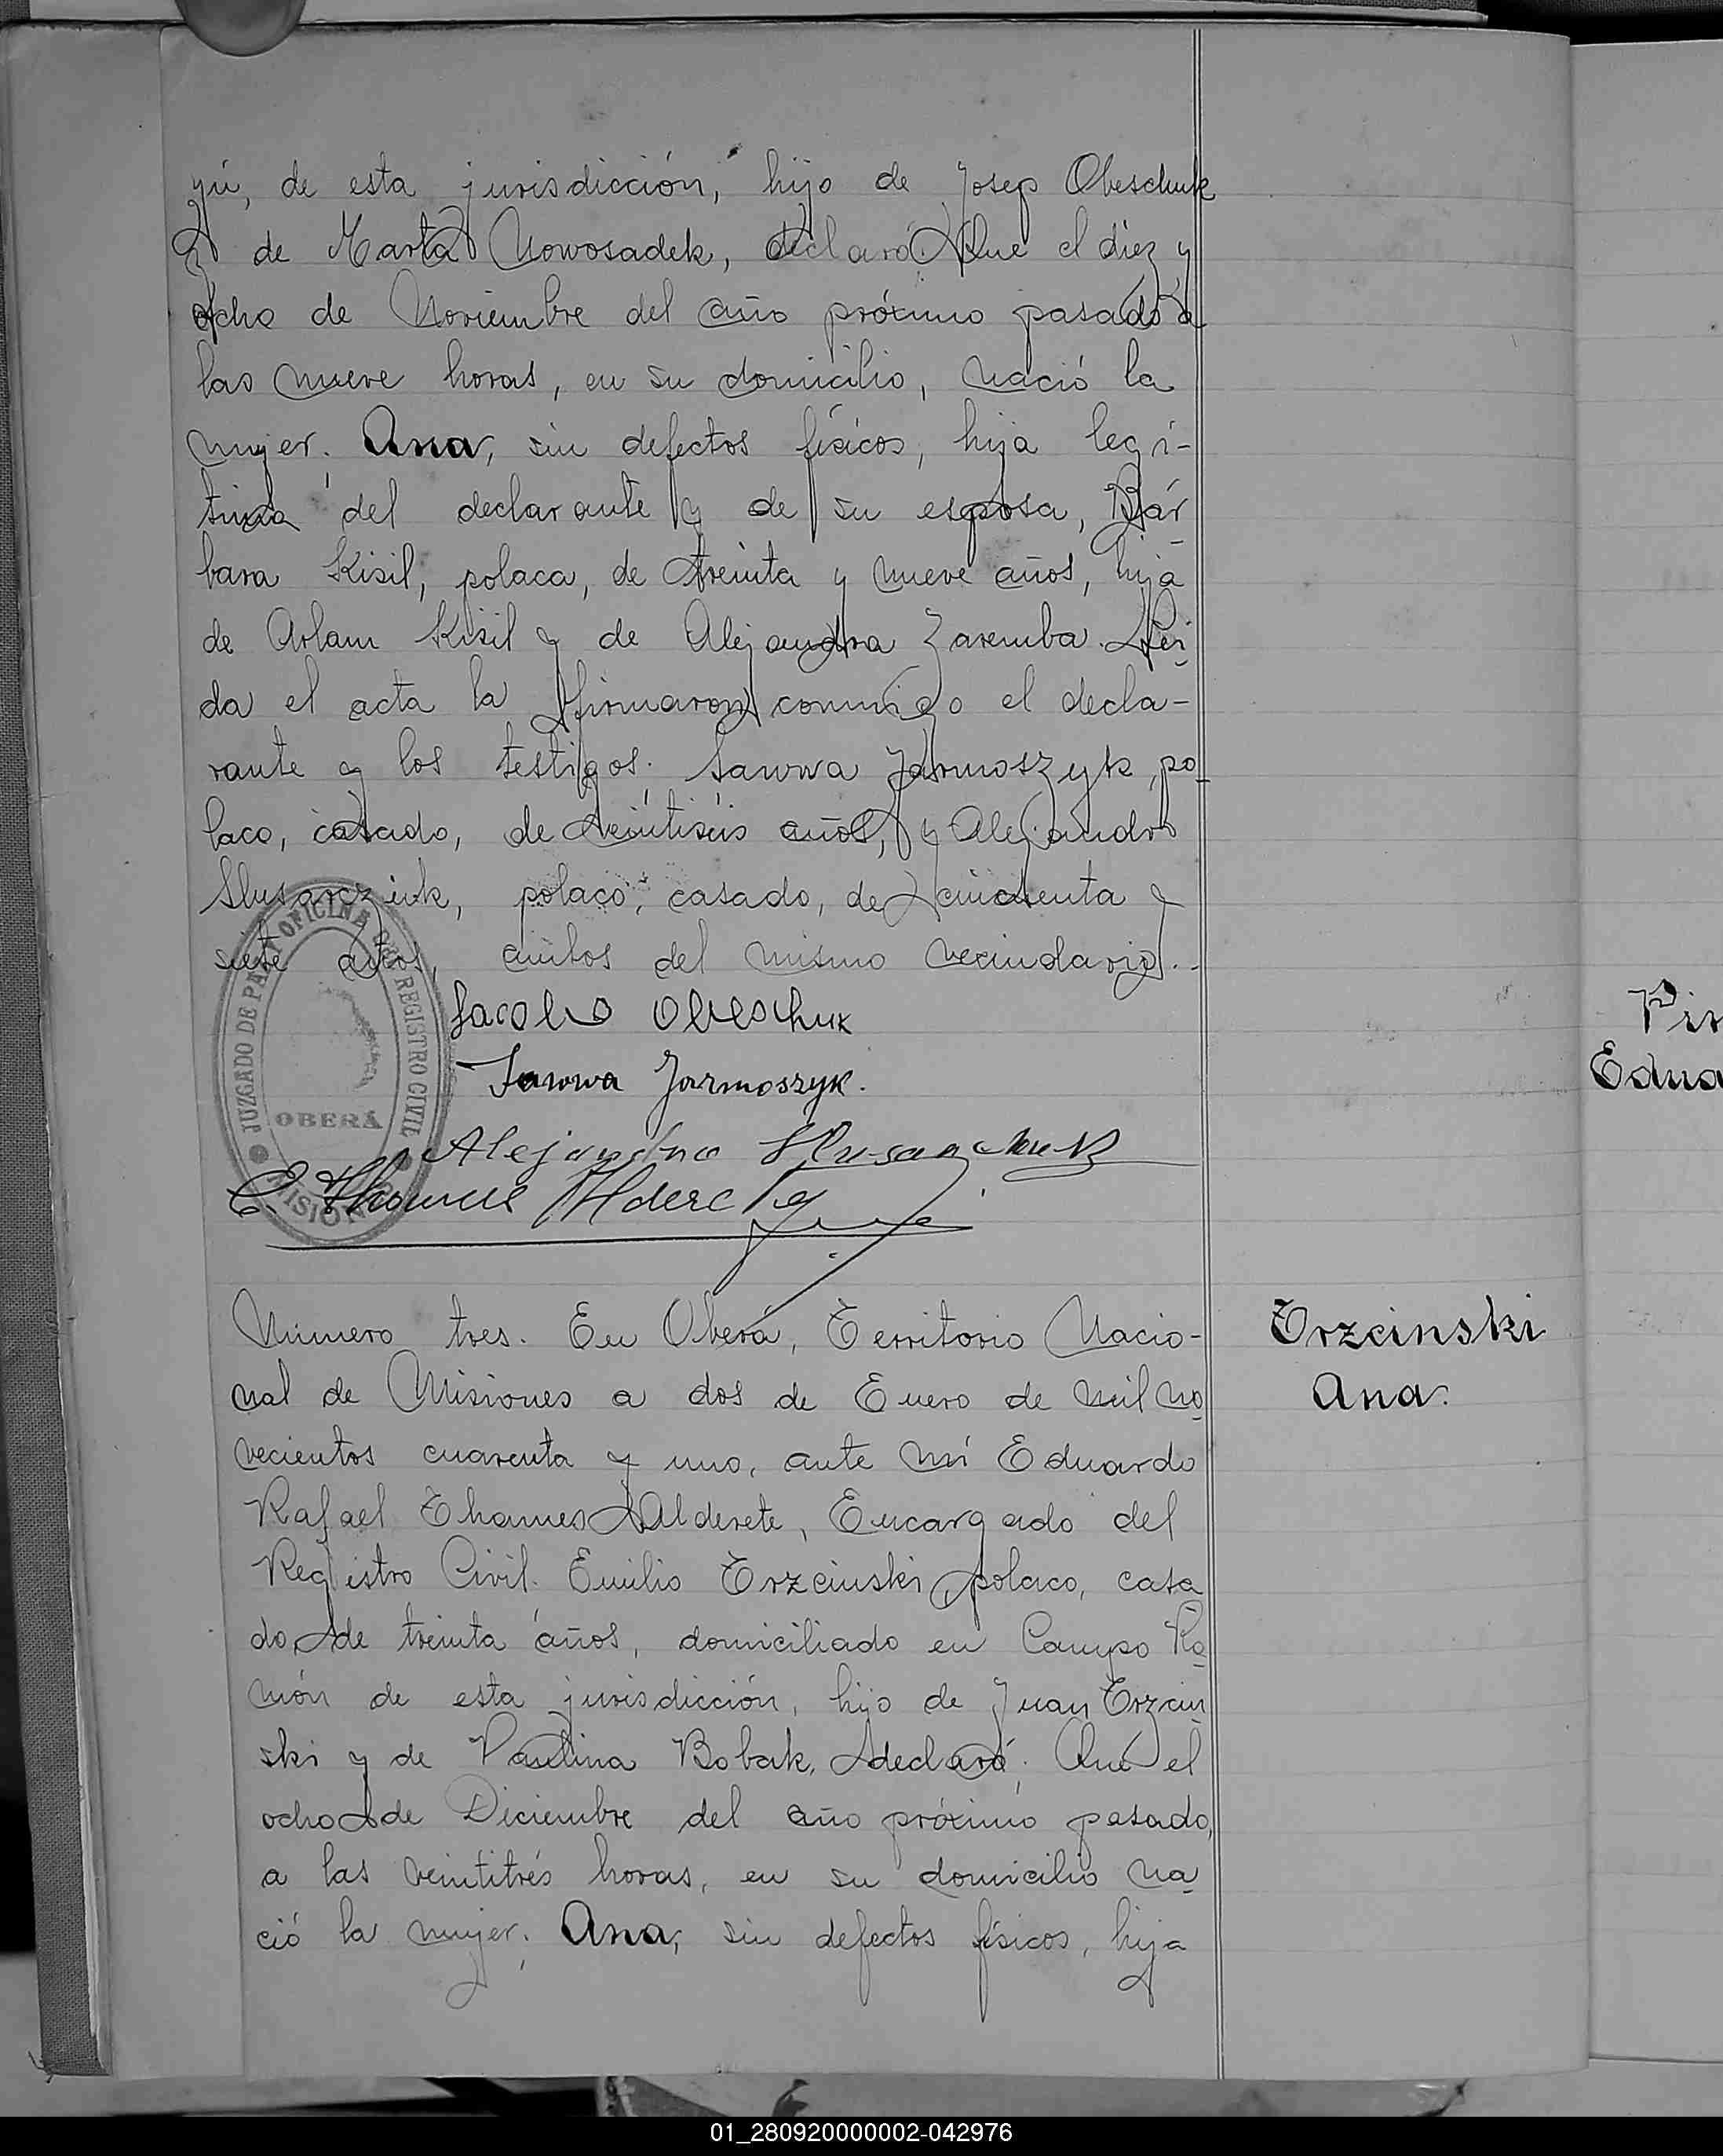 yú, de esta jurisdicción, hijo de Josep Obeschuk
y de Marta Nowosadek, declaró: Que el diez y
ocho de Noviembre del año próximo pasado a
las nueve horas, en su domicilio, nació la
mujer. Ana, sin defectos físicos, hija legí-
tima del declarante y de su esposa, Bár-
bara Kisil, polaca, de treinta y nueve años, hija
de Arlam Kisil y de Alejandra Zaremba. Leí-
da el acta la firmaron conmigo el decla-
rante y los testigos. Sawwa Jarmoszyk, po-
laco, casado, de veintiséis años, y Alejandro
Slusarcziuk, polaco, casado, de cincuenta y
siete años, ambos del mismo vecindario.-
Jacobo Obeschuk
Sawwa Jarmoszyk.
Alejandro
E. Thames Alderete
JUZGADO DE PAZ Y OFICINA DEL REGISTRO CIVIL
OBERÁ
MISIONES
Número tres. En Oberá, Territorio Nacio-
nal de Misiones a dos de Enero de mil no-
vecientos cuarenta y uno, ante mí Eduardo
Rafael Thames Alderete, Encargado del
Registro Civil. Emilio Trzcinski, polaco, casa
do, de treinta años, domiciliado en Campo Ra-
món de esta jurisdicción, hijo de Juan Trzcin
ski y de Paulina Bobak, declaró: Que el
ocho de Diciembre del año próximo pasado,
a las veintitrés horas, en su domicilio na-
ció la mujer. Ana, sin defectos físicos, hija
Trzcinski
Ana.
Pin
Edua
01_280920000002-042976